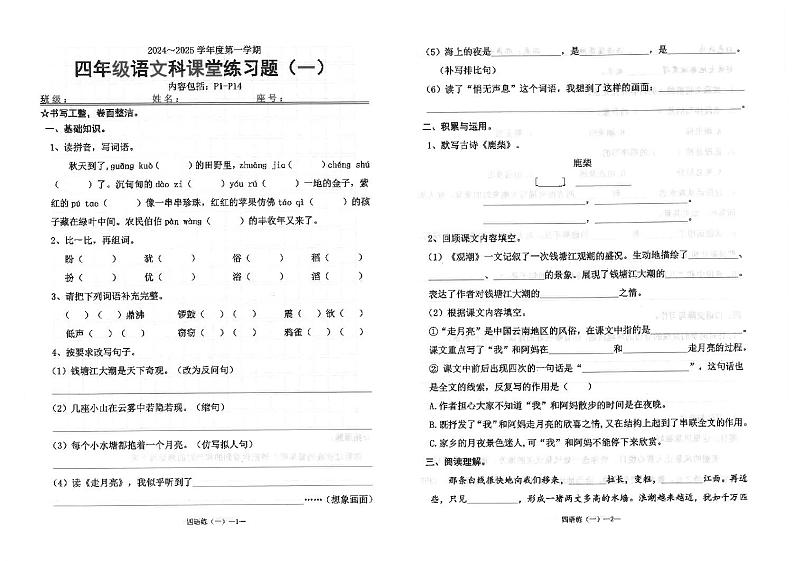 2024～2025学年度第一学期
四年级语文科课堂练习题（一）
内容包括：P1-P14
班级：　　姓名：　　座号：
☆书写工整，卷面整洁。
一、基础知识。
1、读拼音，写词语。
秋天到了,guǎng kuò（　　）的田野里，zhuāng jia（　　）chéng shú
（　　）了。沉甸甸的dào zi（　　）yóu rú（　　）一地的金子，紫
红的pú tao（　　）像一串串珍珠，红红的苹果仿佛táo qì（　　）的孩
子藏在绿叶中间。农民伯伯pàn wàng（　　）的丰收年又来了。
2、比一比，再组词。
盼（　　）　犹（　　）　俗（　　）　稻（　　）
扮（　　）　优（　　）　浴（　　）　滔（　　）
3、请把下列词语补充完整。
（　）（　）鼎沸　锣鼓（　）（　）　震（　）欲（　）
低声（　）（　）　窃窃（　）（　）　鸦雀（　）（　）
4、按要求改写句子。
（1）钱塘江大潮是天下奇观。（改为反问句）
（2）几座小山在云雾中若隐若现。（缩句）
（3）每个小水塘都抱着一个月亮。（仿写拟人句）
（4）读《走月亮》，我似乎听到了____
____……（想象画面）
四语练（一）—1—
（5）海上的夜是____，是____，是____。
（补写排比句）
（6）读了“悄无声息”这个词语，我想到了这样的画面：____
____。
二、积累与运用。
1、默写古诗《鹿柴》。
鹿柴
[____]____
____，____。
____，____。
2、回顾课文内容填空。
（1）《观潮》一文记叙了一次钱塘江观潮的盛况。生动地描绘了____、
____、____的景象。展现了钱塘江大潮的____。
表达了作者对钱塘江大潮的____之情。
（2）根据课文内容填空。
①“走月亮”是中国云南地区的风俗，在课文中指的是____。
课文重点写了“我”和阿妈在____和____走月亮的过程。
② 课文中前后出现四次的一句话是“____”，这句话也
是全文的线索，反复写的作用是（　　）
A.作者担心大家不知道“我”和阿妈散步的时间是在夜晚。
B.既抒发了“我”和阿妈走月亮的欣喜之情，又在结构上起到了串联全文的作用。
C.家乡的月夜景色迷人,可“我”和阿妈不能停下来欣赏。
三、阅读理解。
那条白线很快地向我们移来，____拉长，变粗，____江面。再近
些，只见____，形成一堵两丈多高的水墙。浪潮越来越近，犹如千万匹
四语练（一）—2—